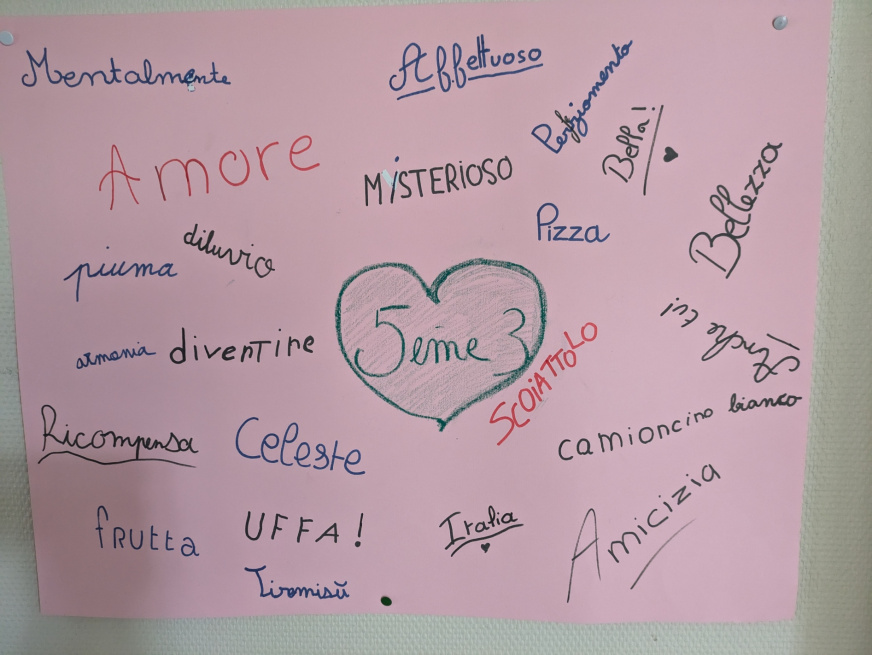 Mentalmente
Affettuoso
Bella!
Amore
MiSTERiOSO
Bellezza
diluvio
Pizza
piuma
5eme 3
armonia
divertire
SCOiATTOLO
camioncino bianco
Ricompensa
Celeste
Amicizia
fRUtta
UFFA!
Italia
Tiremisŭ